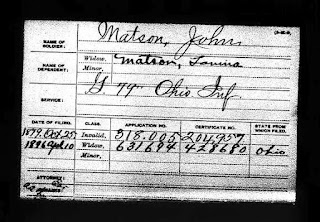 NAME OF SOLDIER: Matson, John
NAME OF DEPENDENT: Widow, Matson, Lovina
Minor,
SERVICE: G 77" Ohio Inf
DATE OF FILING. CLASS. APPLICATION NO. CERTIFICATE NO. STATE FROM WHICH FILED.
1879 Oct 25 Invalid, 318.005 204.957
1896 Apl 10 Widow, 631694 428680 Ohio
Minor,
ATTORNEY: